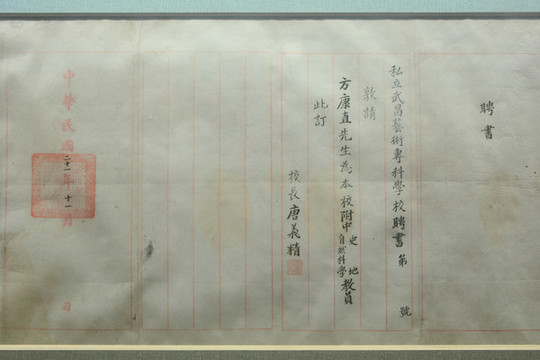 聘書
私立武昌藝術專科學校聘書第 號
敦請
方康直先生為本校附中史地自然科學教員
此訂
校長唐義精
中華民國二十一年十一月 日